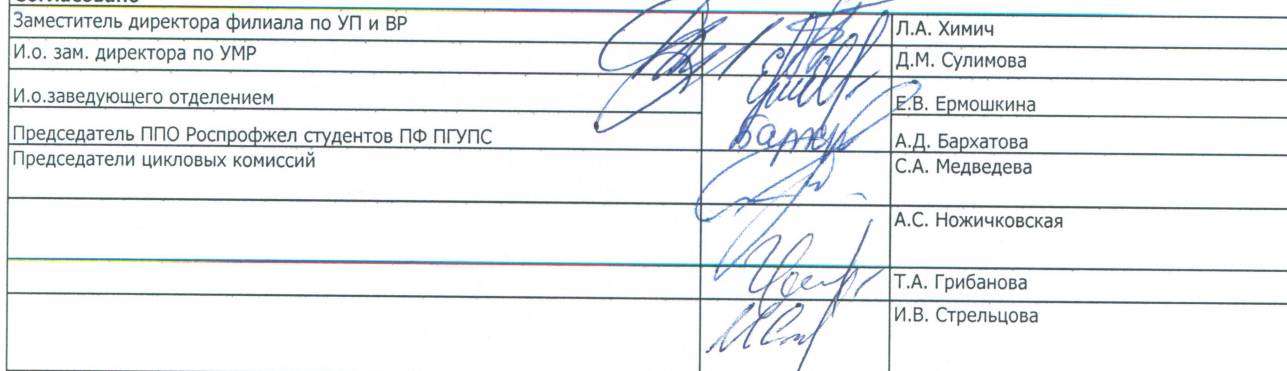 Согласовано
Заместитель директора филиала по УП и ВР Л.А. Химич
И.о. зам. директора по УМР Д.М. Сулимова
И.о.заведующего отделением Е.В. Ермошкина
Председатель ППО Роспрофжел студентов ПФ ПГУПС А.Д. Бархатова
Председатели цикловых комиссий С.А. Медведева
А.С. Ножичковская
Т.А. Грибанова
И.В. Стрельцова